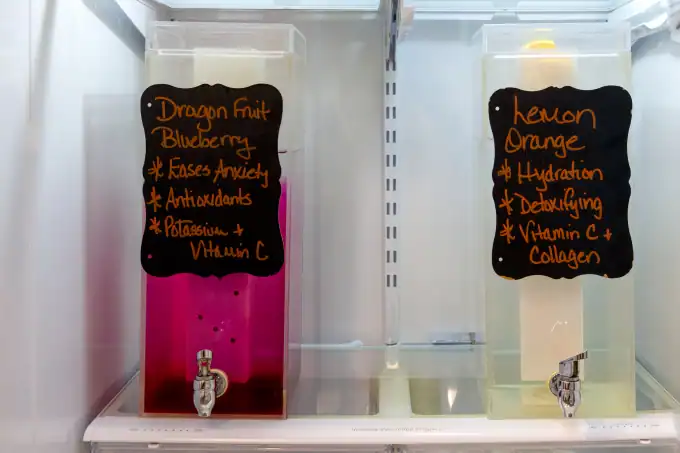 Dragon Fruit
Blueberry
* Eases Anxiety
* Antioxidants
* Potassium +
Vitamin C
Lemon
Orange
* Hydration
* Detoxifying
* Vitamin C +
Collagen